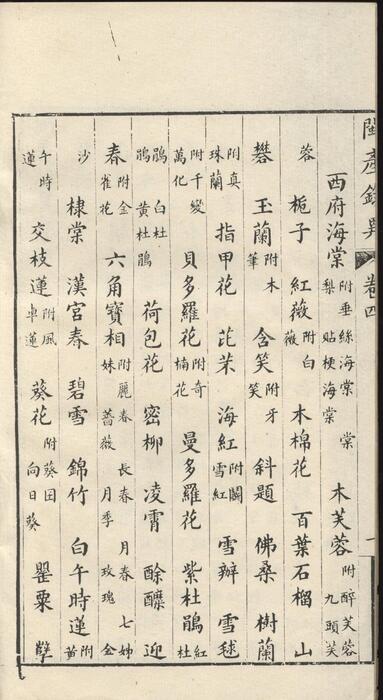 閩產錄異 卷四 一
西府海棠 附垂絲海棠 棠梨 貼梗海棠 木芙蓉 附醉芙蓉 九頭芙
蓉 梔子 紅薇 附白薇 木棉花 百葉石榴 山
礬 玉蘭 附木筆 含笑 附牙笑 斜題 佛桑 樹蘭
附真珠蘭 指甲花 茈茉 海紅 附闍雪紅 雪瓣 雪毬
附千變萬化 貝多羅花 附奇楠花 曼多羅花 紫杜鵑 紅杜
鵑 白杜鵑 黃杜鵑 荷包花 密柳 凌霄 酴醾 迎
春 附金雀花 六角寶相 附麗春 長春 月春 七姊妹 薔薇 月季 玫瑰 金
沙 棣棠 漢宮春 碧雪 錦竹 白午時蓮 附黃
午時蓮 交枝蓮 附風卓蓮 葵花 附葵囝 向日葵 罌粟 孽